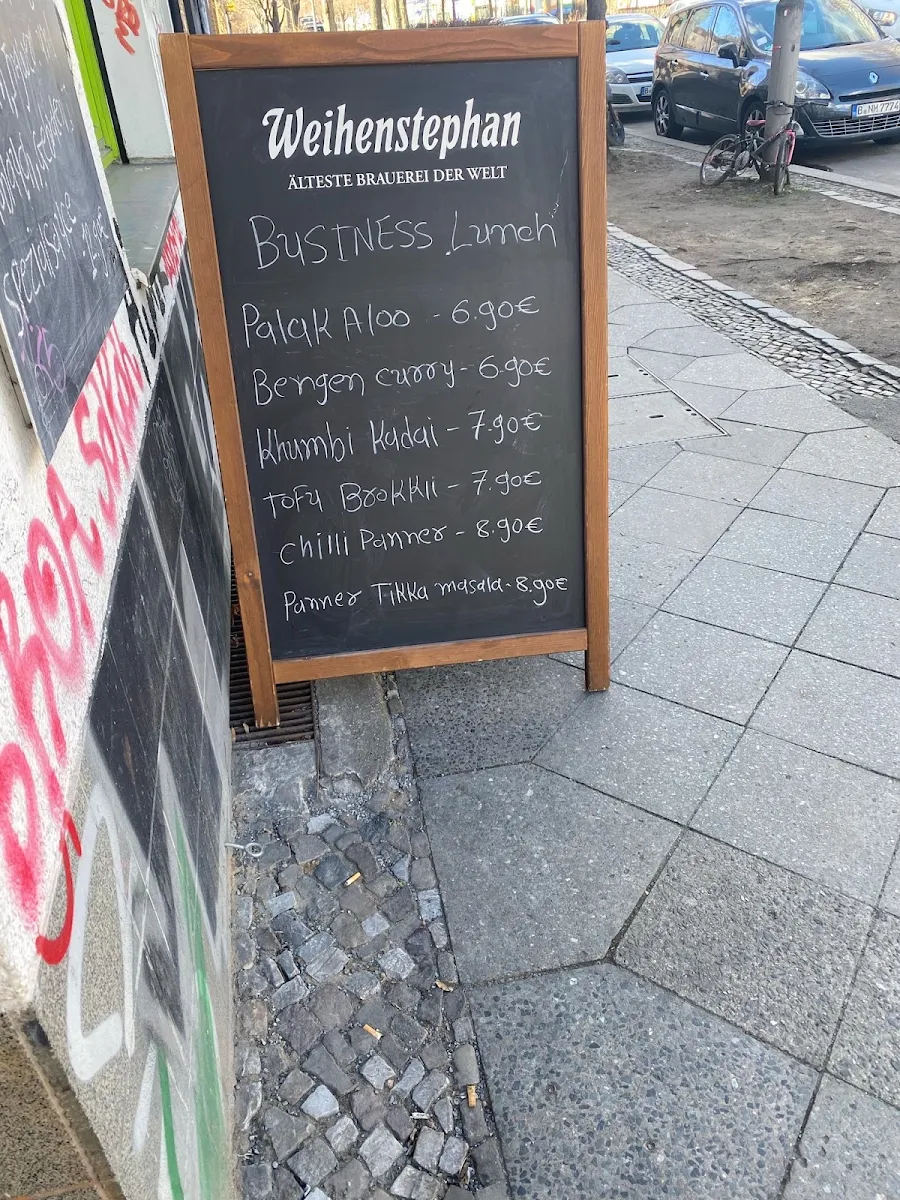 Weihenstephan
ÄLTESTE BRAUEREI DER WELT
BUSINESS Lunch
Palak Aloo - 6.90€
Bengen curry - 6.90€
Khumbi Kadai - 7.90€
TOFU Brokkli - 7.90€
chilli Panner - 8.90€
Panner Tikka masala - 8.90€
B NM 7774